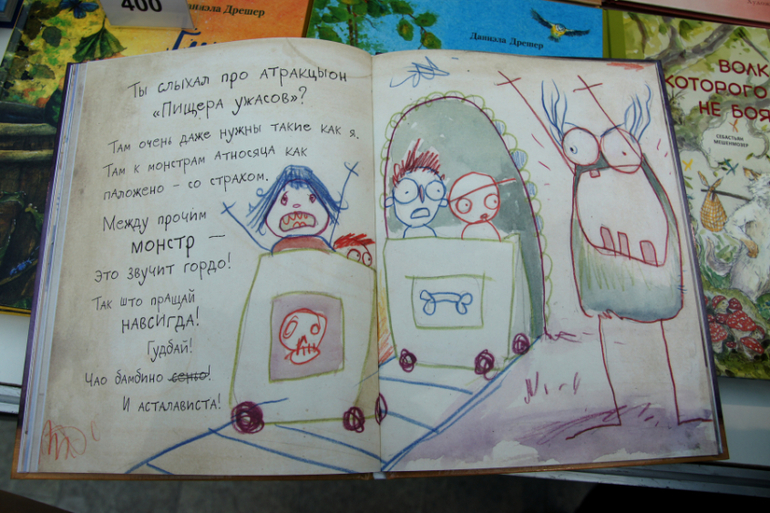 400
Даниэла Дрешер
Даниэла Дрешер
Ты слыхал про атракцыон
«Пищера ужасов»?
Там очень даже нужны такие как я.
Там к монстрам атносяца как
паложено – со страхом.
Между прочим
монстр –
это звучит гордо!
Так што пращай
навсигда!
Гудбай!
Чао бамбино сеньо!
И асталависта!
ВОЛК
КОТОРОГО
НЕ БОЯ
СЕБАСТЬЯН
МЕШЕНМОЗЕР